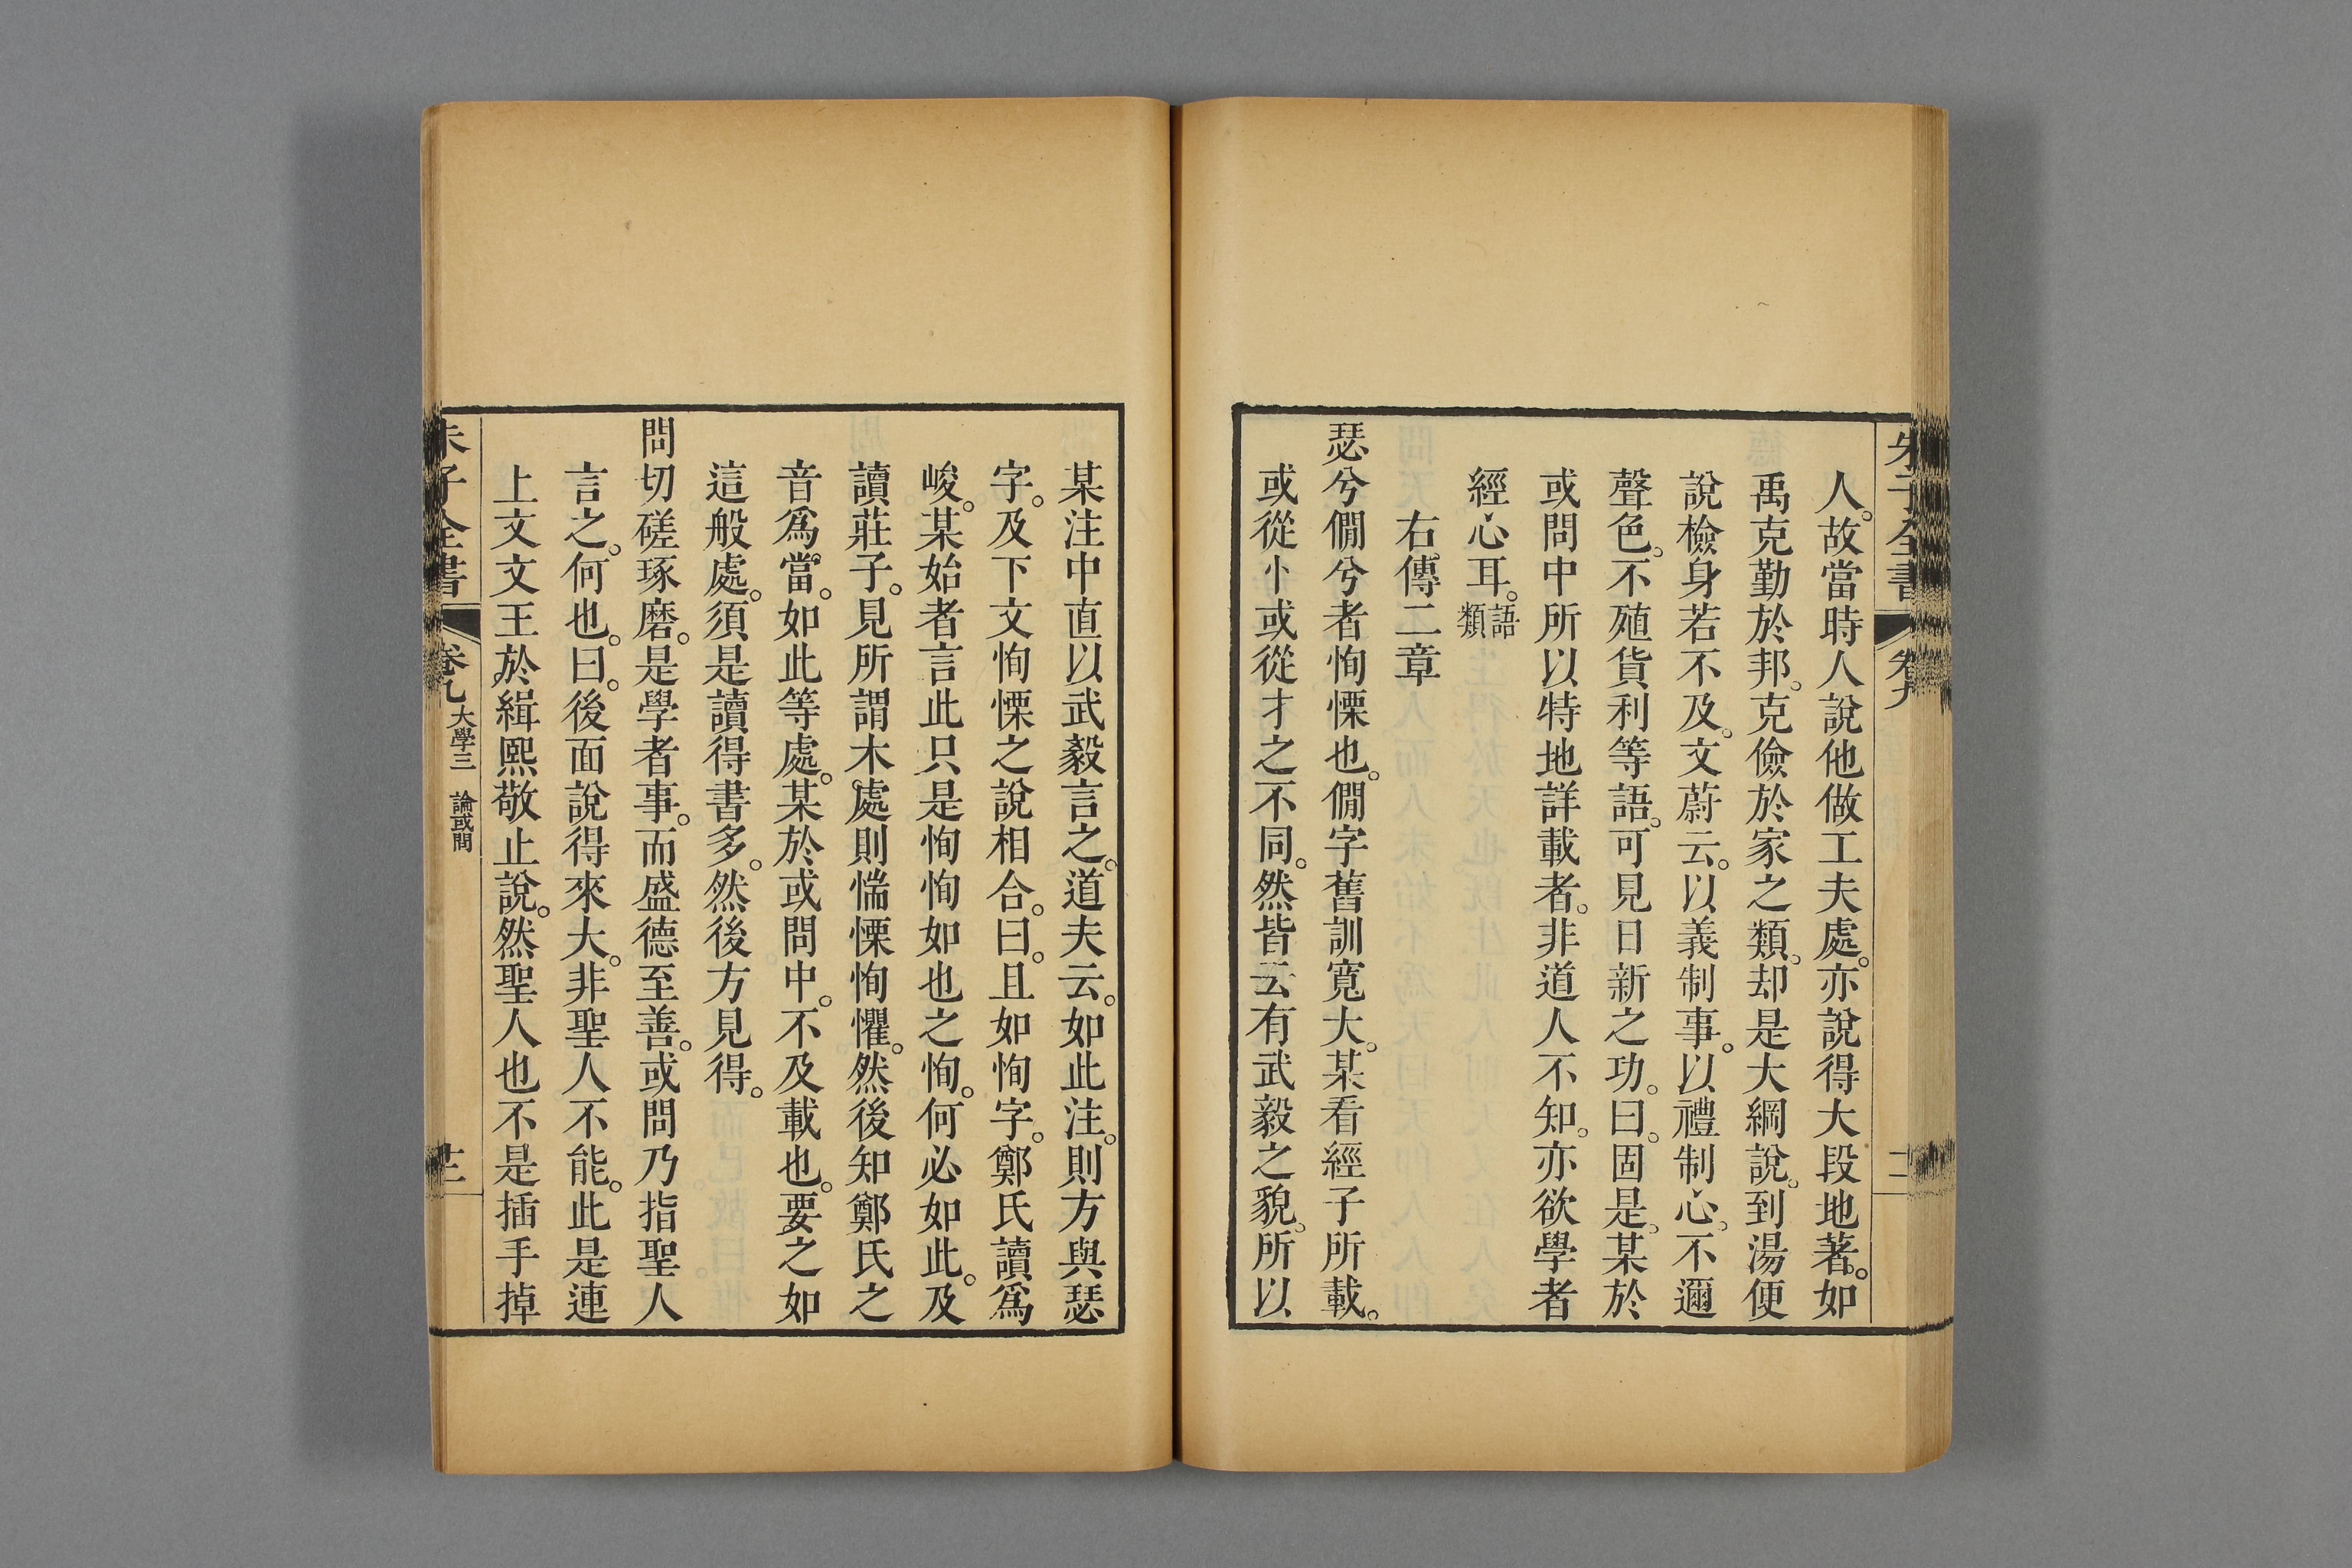 人。故當時人說他做工夫處。亦說得大段地著。如
禹克勤於邦。克儉於家之類。却是大綱說。到湯便
說檢身若不及。文蔚云。以義制事。以禮制心。不邇
聲色。不殖貨利等語。可見日新之功。曰。固是。某於
或問中所以特地詳載者。非道人不知。亦欲學者
經心耳。語類
右傳二章
瑟兮僩兮者恂慄也。僩字舊訓寬大。某看經子所載。
或從忄或從才之不同。然皆云有武毅之貌。所以
某注中直以武毅言之。道夫云。如此注。則方與瑟
字。及下文恂慄之說相合。曰。且如恂字。鄭氏讀爲
峻。某始者言此只是恂恂如也之恂。何必如此。及
讀莊子。見所謂木處則惴慄恂懼。然後知鄭氏之
音爲當。如此等處。某於或問中。不及載也。要之如
這般處。須是讀得書多。然後方見得。
問切磋琢磨。是學者事。而盛德至善。或問乃指聖人
言之。何也。曰。後面說得來大。非聖人不能。此是連
上文文王於緝熙敬止說。然聖人也不是插手掉
朱子全書
大學三 論或問